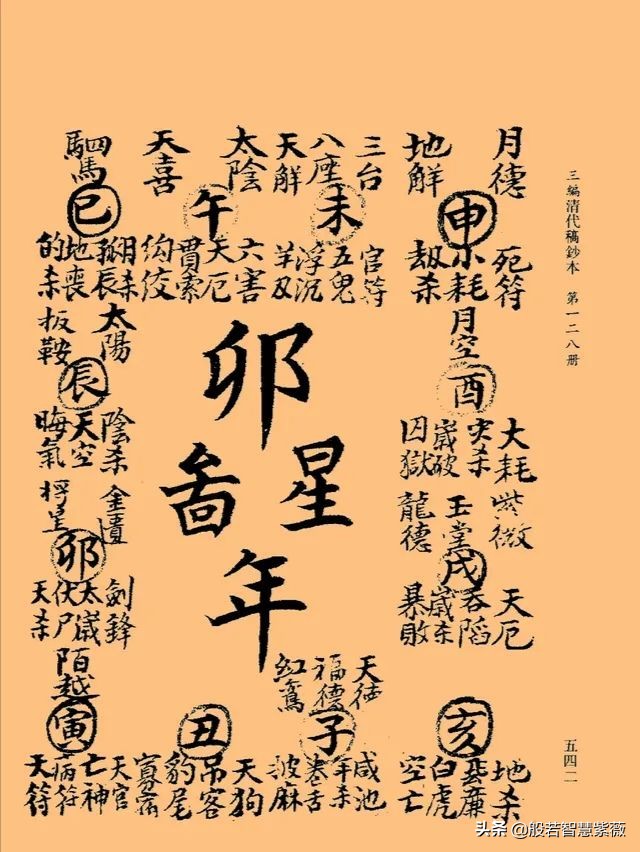 三編清代稿鈔本 第一二八册
五四二
月德
地解
申
死符
小耗
劫杀
三台
八座
天解
未
官符
五鬼
浮沉
羊刃
太陰
天喜
午
六害
天厄
貫索
勾绞
駟馬
巳
月杀
孤辰
地喪
的杀
太陽
板鞍
辰
陰杀
天空
晦氣
金匱
卯
劍鋒
太歲
伏尸
天杀
陌越
寅
天官
亡神
病符
天符
丑
天狗
吊客
豹尾
寡宿
天德
福德
紅鸞
子
咸池
年杀
卷舌
披麻
亥
地杀
蜚廉
白虎
空亡
紫微
玉堂
龍德
戌
天厄
吞陷
歲杀
暴敗
月空
酉
大耗
灾杀
歲破
囚獄
卯
星
啚
年
头条 @般若智慧紫薇